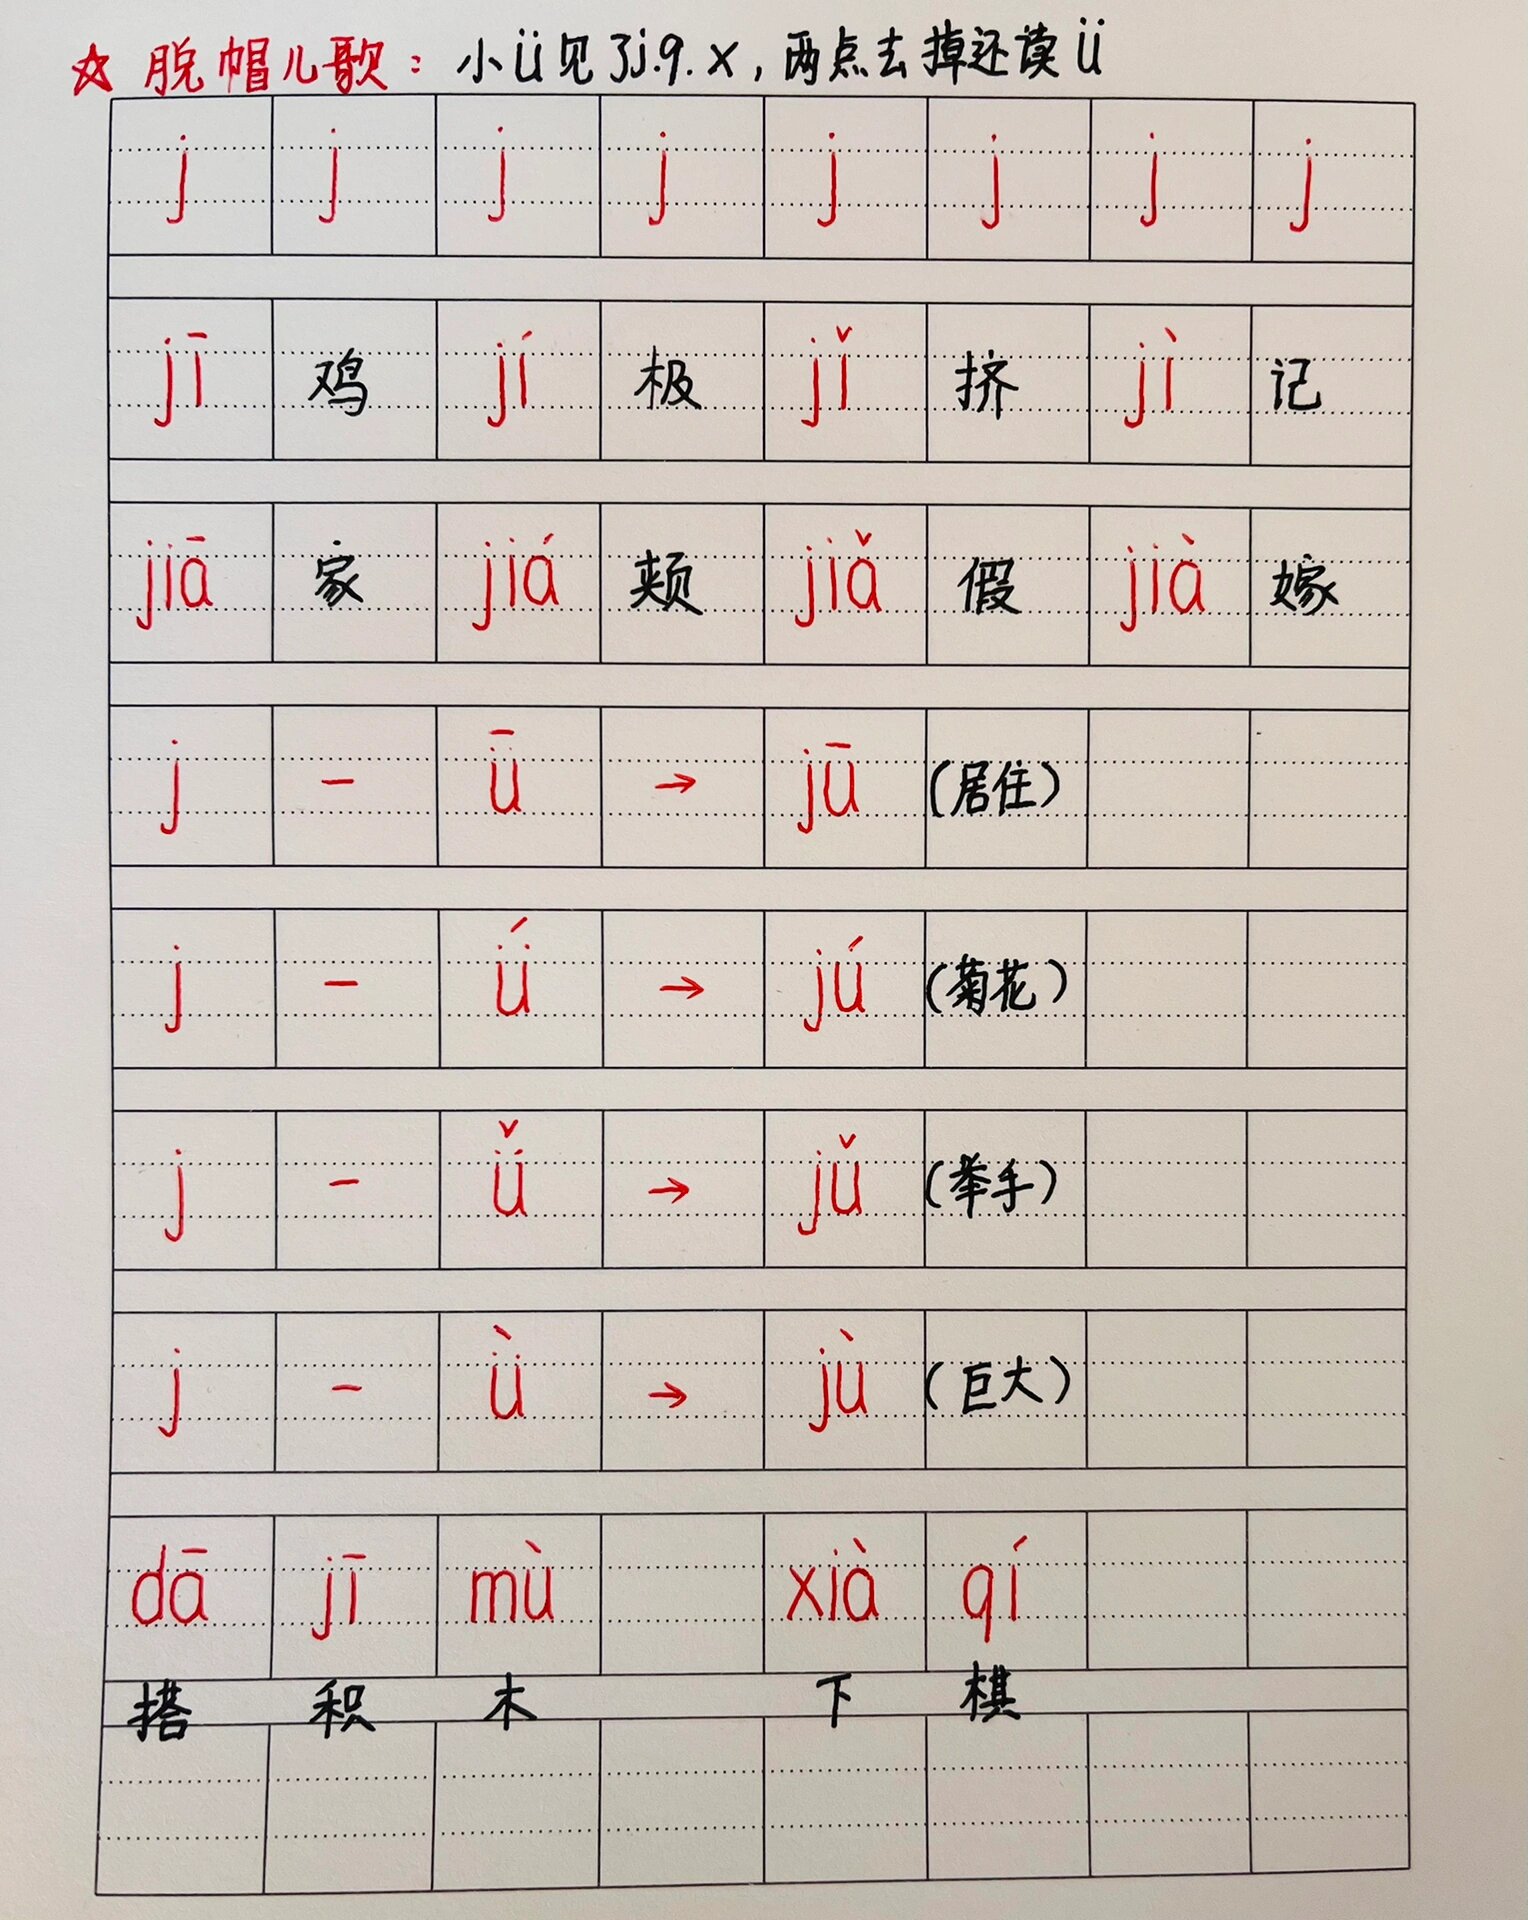 ☆ 脱帽儿歌：小ü见了j.q.x，两点去掉还读ü
j j j j j j j j
jī 鸡 jí 极 jǐ 挤 jì 记
jiā 家 jiá 颊 jiǎ 假 jià 嫁
j - ǖ → jū (居住)
j - ǘ → jú (菊花)
j - ǚ → jǔ (举手)
j - ǜ → jù (巨大)
dā jī mù xià qí
搭 积 木 下 棋